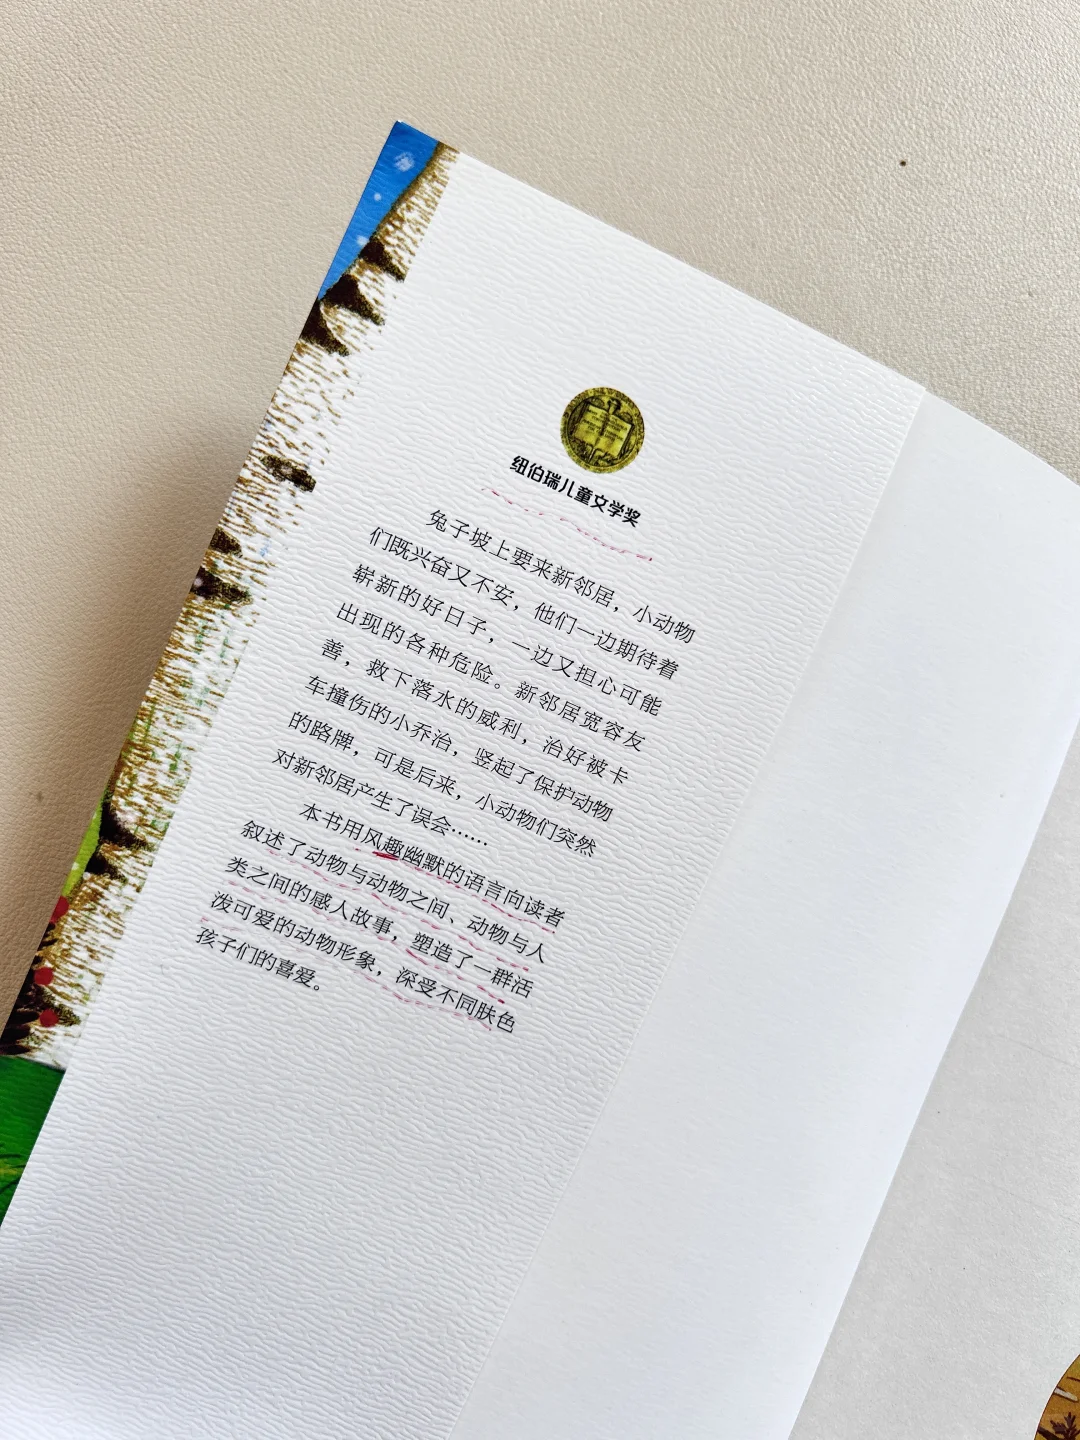 纽伯瑞儿童文学奖
兔子坡上要来新邻居，小动物
们既兴奋又不安，他们一边期待着
崭新的好日子，一边又担心可能
出现的各种危险。新邻居宽容友
善，救下落水的威利，治好被卡
车撞伤的小乔治，竖起了保护动物
的路牌，可是后来，小动物们突然
对新邻居产生了误会……
本书用风趣幽默的语言向读者
叙述了动物与动物之间、动物与人
类之间的感人故事，塑造了一群活
泼可爱的动物形象，深受不同肤色
孩子们的喜爱。